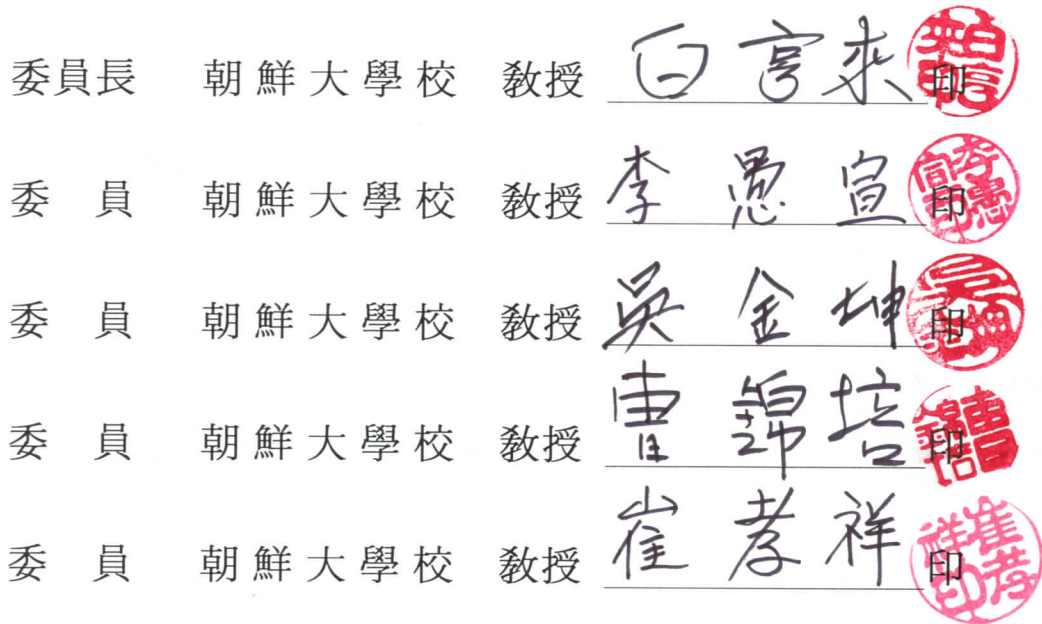 委員長 朝鮮大學校 敎授 白亨來 印
委 員 朝鮮大學校 敎授 李愚宣 印
委 員 朝鮮大學校 敎授 吳金坤 印
委 員 朝鮮大學校 敎授 曺錦培 印
委 員 朝鮮大學校 敎授 崔孝祥 印